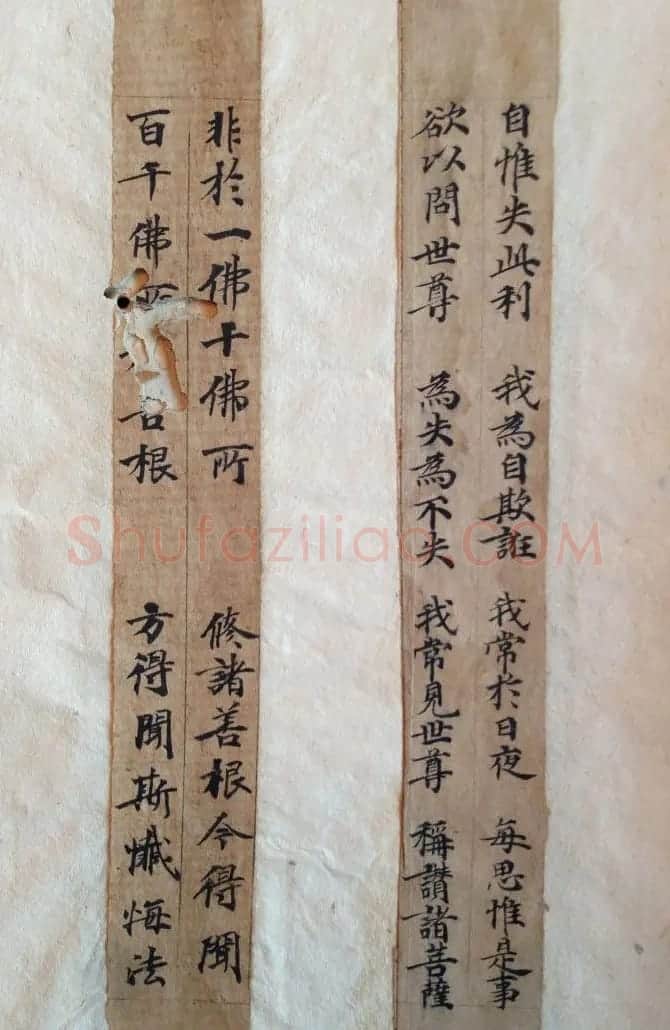 自惟失此利 我為自欺誑 我常於日夜 每思惟是事
欲以問世尊 為失為不失 我常見世尊 稱讚諸菩薩
非於一佛十佛所 修諸善根今得聞
百千佛所 善根 方得聞斯懺悔法
Shufaziliao.COM